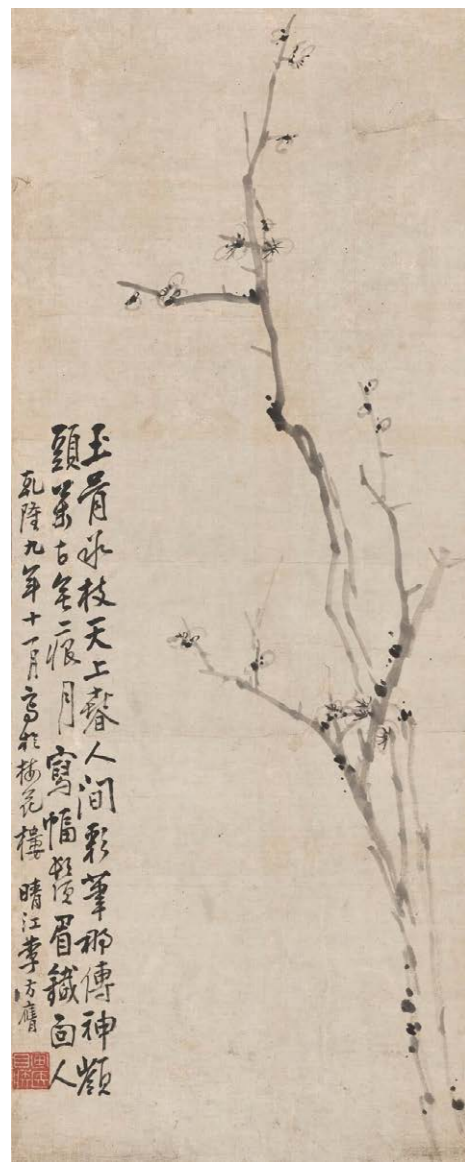 玉骨冰枝天上春人間彩筆那傳神嶺
頭萬古無痕月寫幅鬚眉鐵面人
乾隆九年十一月寫於梅花樓 晴江李方膺